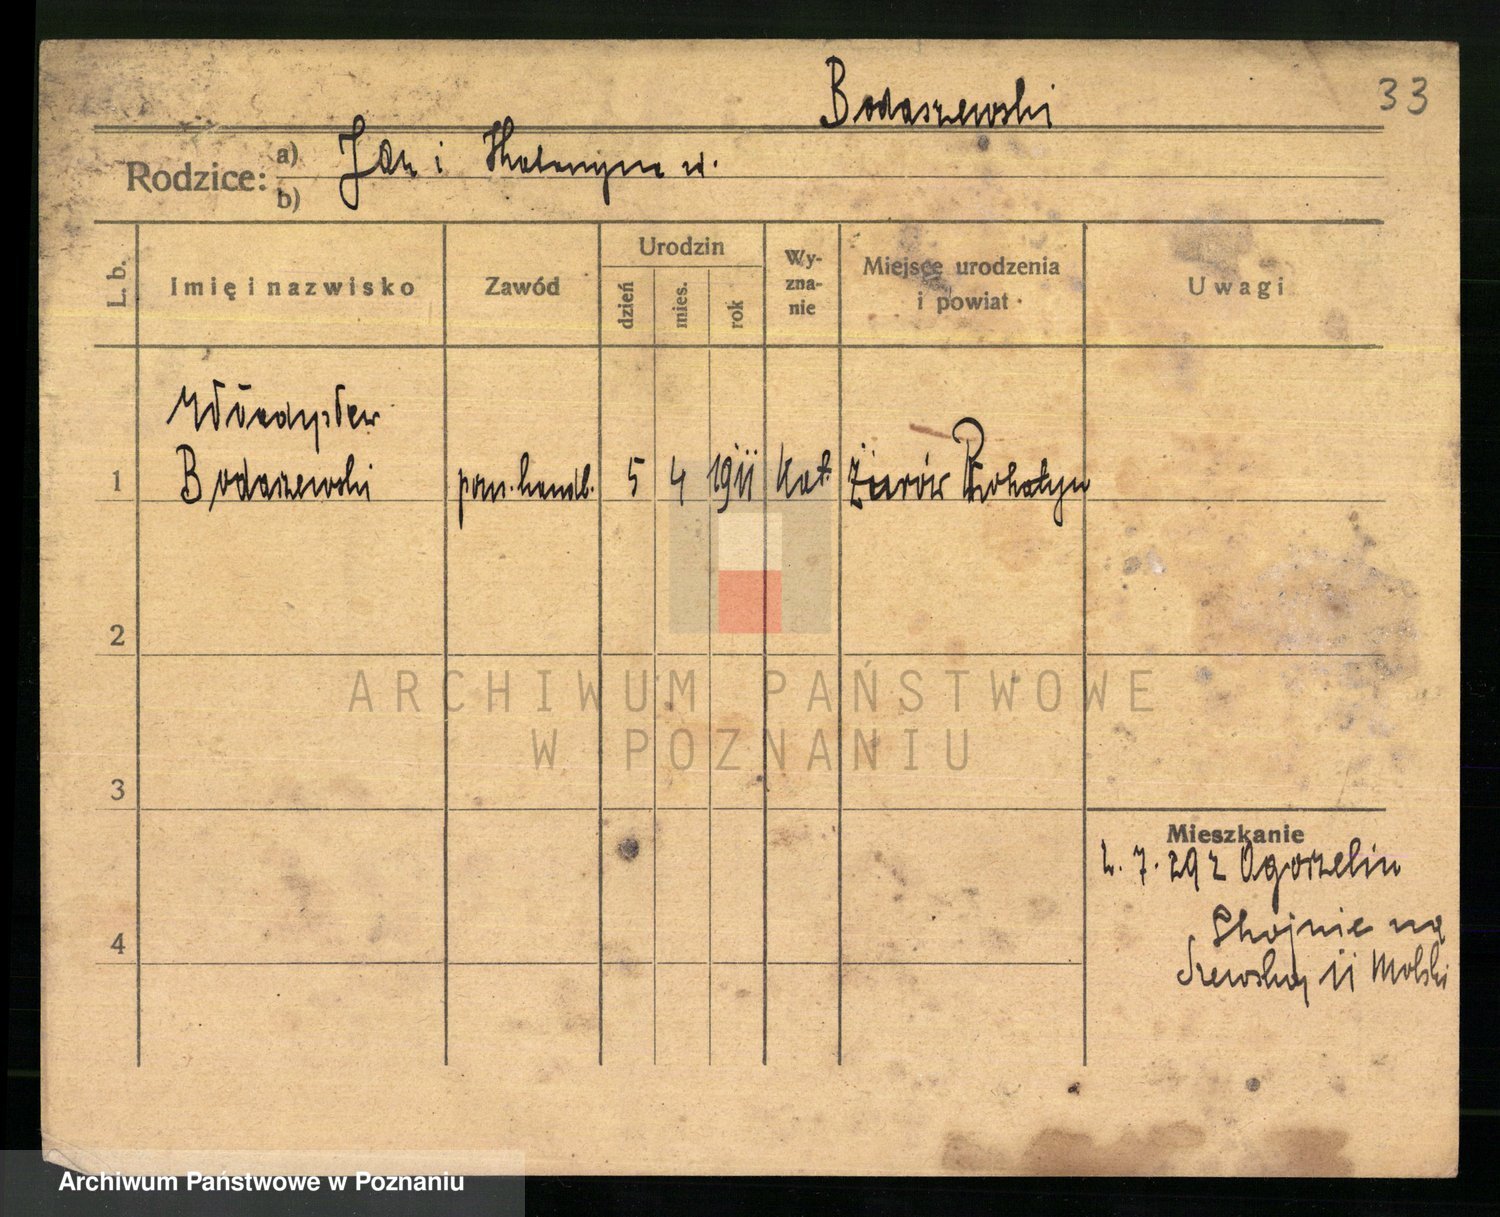 Bodaszewski
33
Rodzice: a) Jan i Katarzyna z.
b)
L. b.
Imię i nazwisko
Zawód
Urodzin
dzień
mies.
rok
Wy-
zna-
nie
Miejsce urodzenia
i powiat
Uwagi
Władysław
1 Bodaszewski pom. handl. 5 4 1911 kat. Żurów Rohatyn
2
3
4
Mieszkanie
2. 7. 29 z Ogorzelin
Chojnic na
Szewską 11 Molski
ARCHIWUM PAŃSTWOWE
W POZNANIU
Archiwum Państwowe w Poznaniu